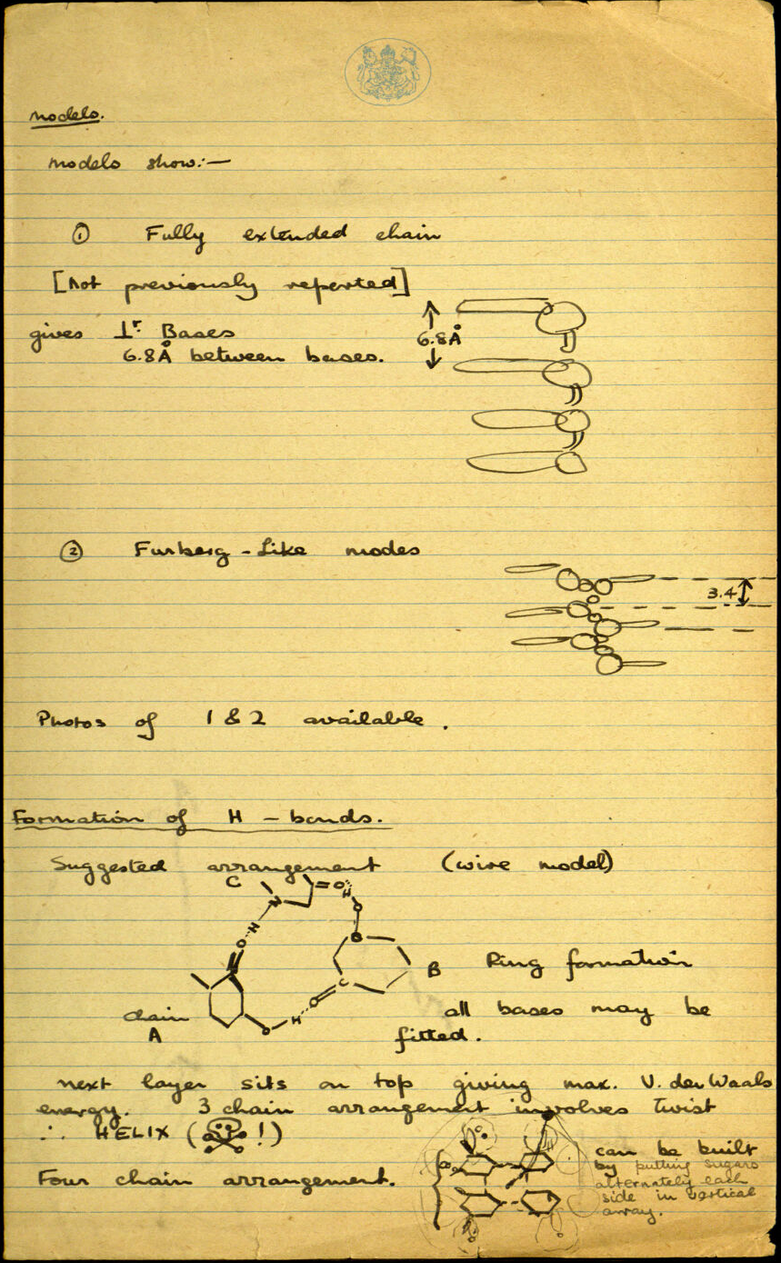 Models.
Models show:—
① Fully extended chain
[Not previously reported]
gives ⊥r. Bases
6.8Å between bases.
6.8Å
② Furberg-like modes
3.4
Photos of 1 & 2 available.
Formation of H-bonds.
Suggested arrangement (wire model)
C
=O
H
N
O
H
O
O
B Ring formation
C
O
chain
A
O
H
all bases may be
fitted.
next layer sits on top giving max. V. der Waals
energy. 3 chain arrangement involves twist
∴ HELIX (☠!)
Four chain arrangement.
can be built
by putting sugars
alternately each
side in vertical
array.